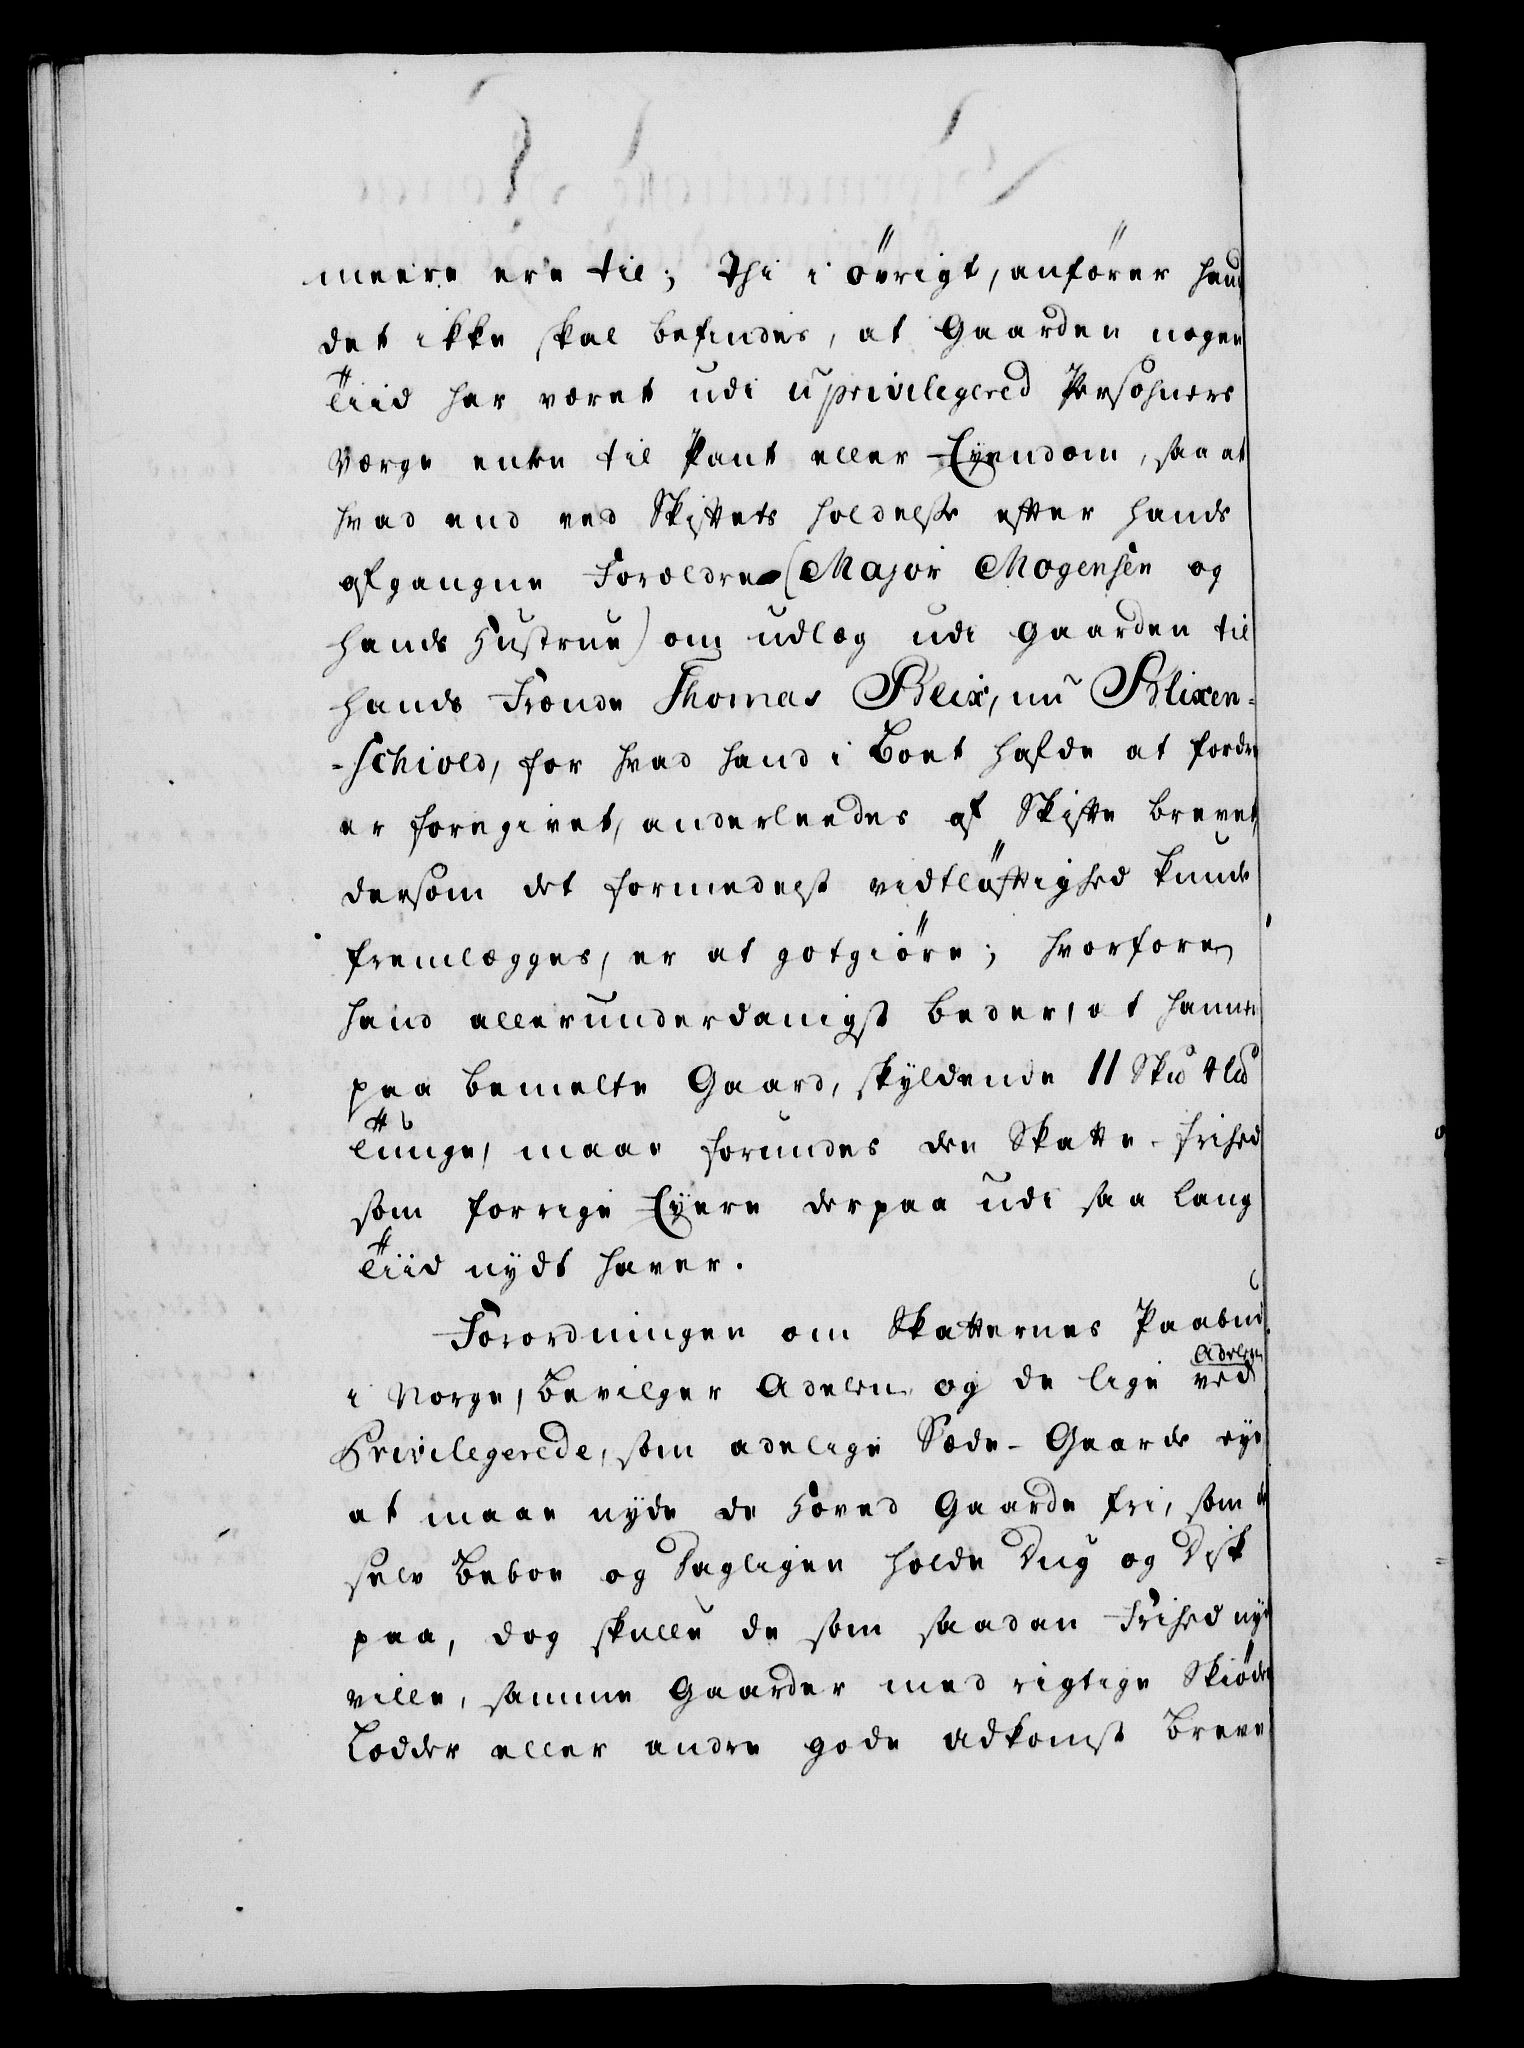 meere ere til; Thi i övrigt, anfører hand
det ikke skal befindes, at Gaarden nogen
Tiid har været udi uprivilegered Persohners
Værge enten til Pant eller Eyendom, saa at
hvad end ved Skiftets holdelse efter hands
afgangne Forældre (Major Mogensen og
hands Hustrue) om udlæg udi Gaarden til
hands Frænde Thomas Blix, nu Blixen-
-schiold, for hvad hand i Boet hafde at fordre
er foregivet, anderleedes af Skifte brevet,
dersom det formedelst vidtløftighed kunde
fremlægges, er at gotgiöre; hvorfore
hand allerunderdanigst beder, at hannem
paa bemelte Gaard, skyldende 11 Skd 4 ld
Tunge, maae forundes den Skatte-frihed
som forrige Eyere derpaa udi saa lang
Tiid nydt haver.
Forordningen om Skatternes Paabud
i Norge, bevilger Adelen og de lige ved Adelen
Privilegerede, som adelige Sæde-Gaarde eye
at maae nyde de Hoved Gaarde fri, som de
selv beboe og dagligen holde Dug og Disk
paa, dog skulle de som saadan Frihed nyde
ville, samme Gaarder med rigtige Skiøder
Lodder eller andre gode adkomst breve